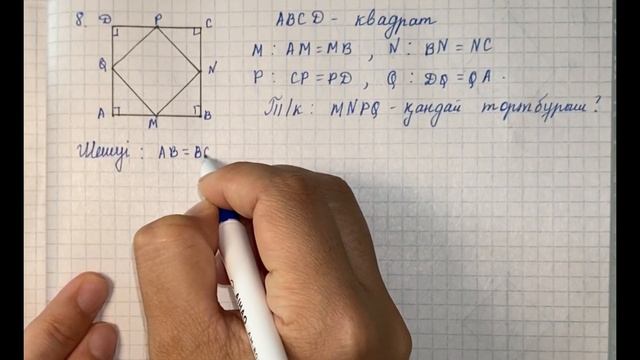 8.
D P C
Q N
A M B
ABCD - квадрат
M : AM = MB , N : BN = NC
P : CP = PD , Q : DQ = QA .
Т/к : MNPQ - қандай төртбұрыш?
Шешуі : AB = BC